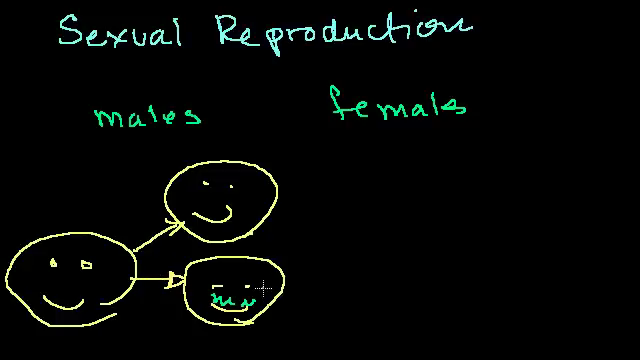 Sexual Reproduction
males females